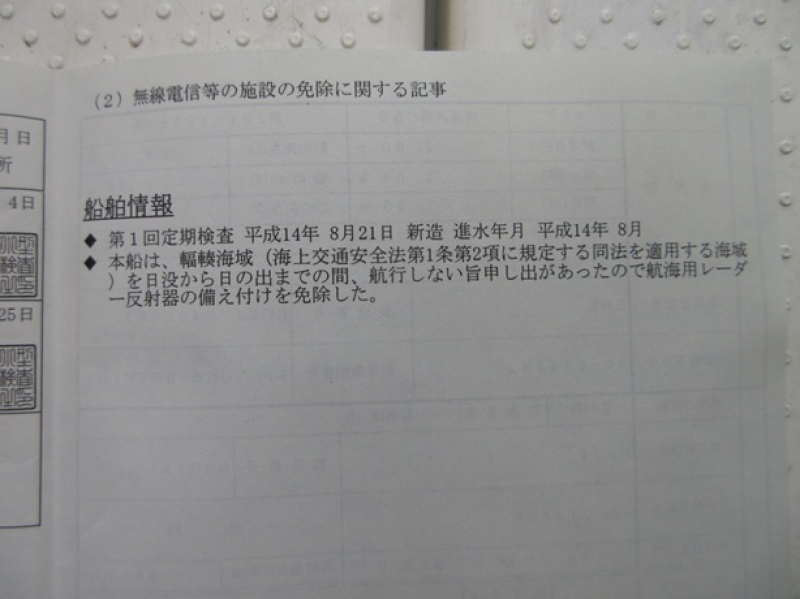 (2)無線電信等の施設の免除に関する記事
月日
所
4日
船舶情報
◆ 第1回定期検査 平成14年 8月21日 新造 進水年月 平成14年 8月
◆ 本船は、輻輳海域(海上交通安全法第1条第2項に規定する同法を適用する海域
)を日没から日の出までの間、航行しない旨申し出があったので航海用レーダ
ー反射器の備え付けを免除した。
25日